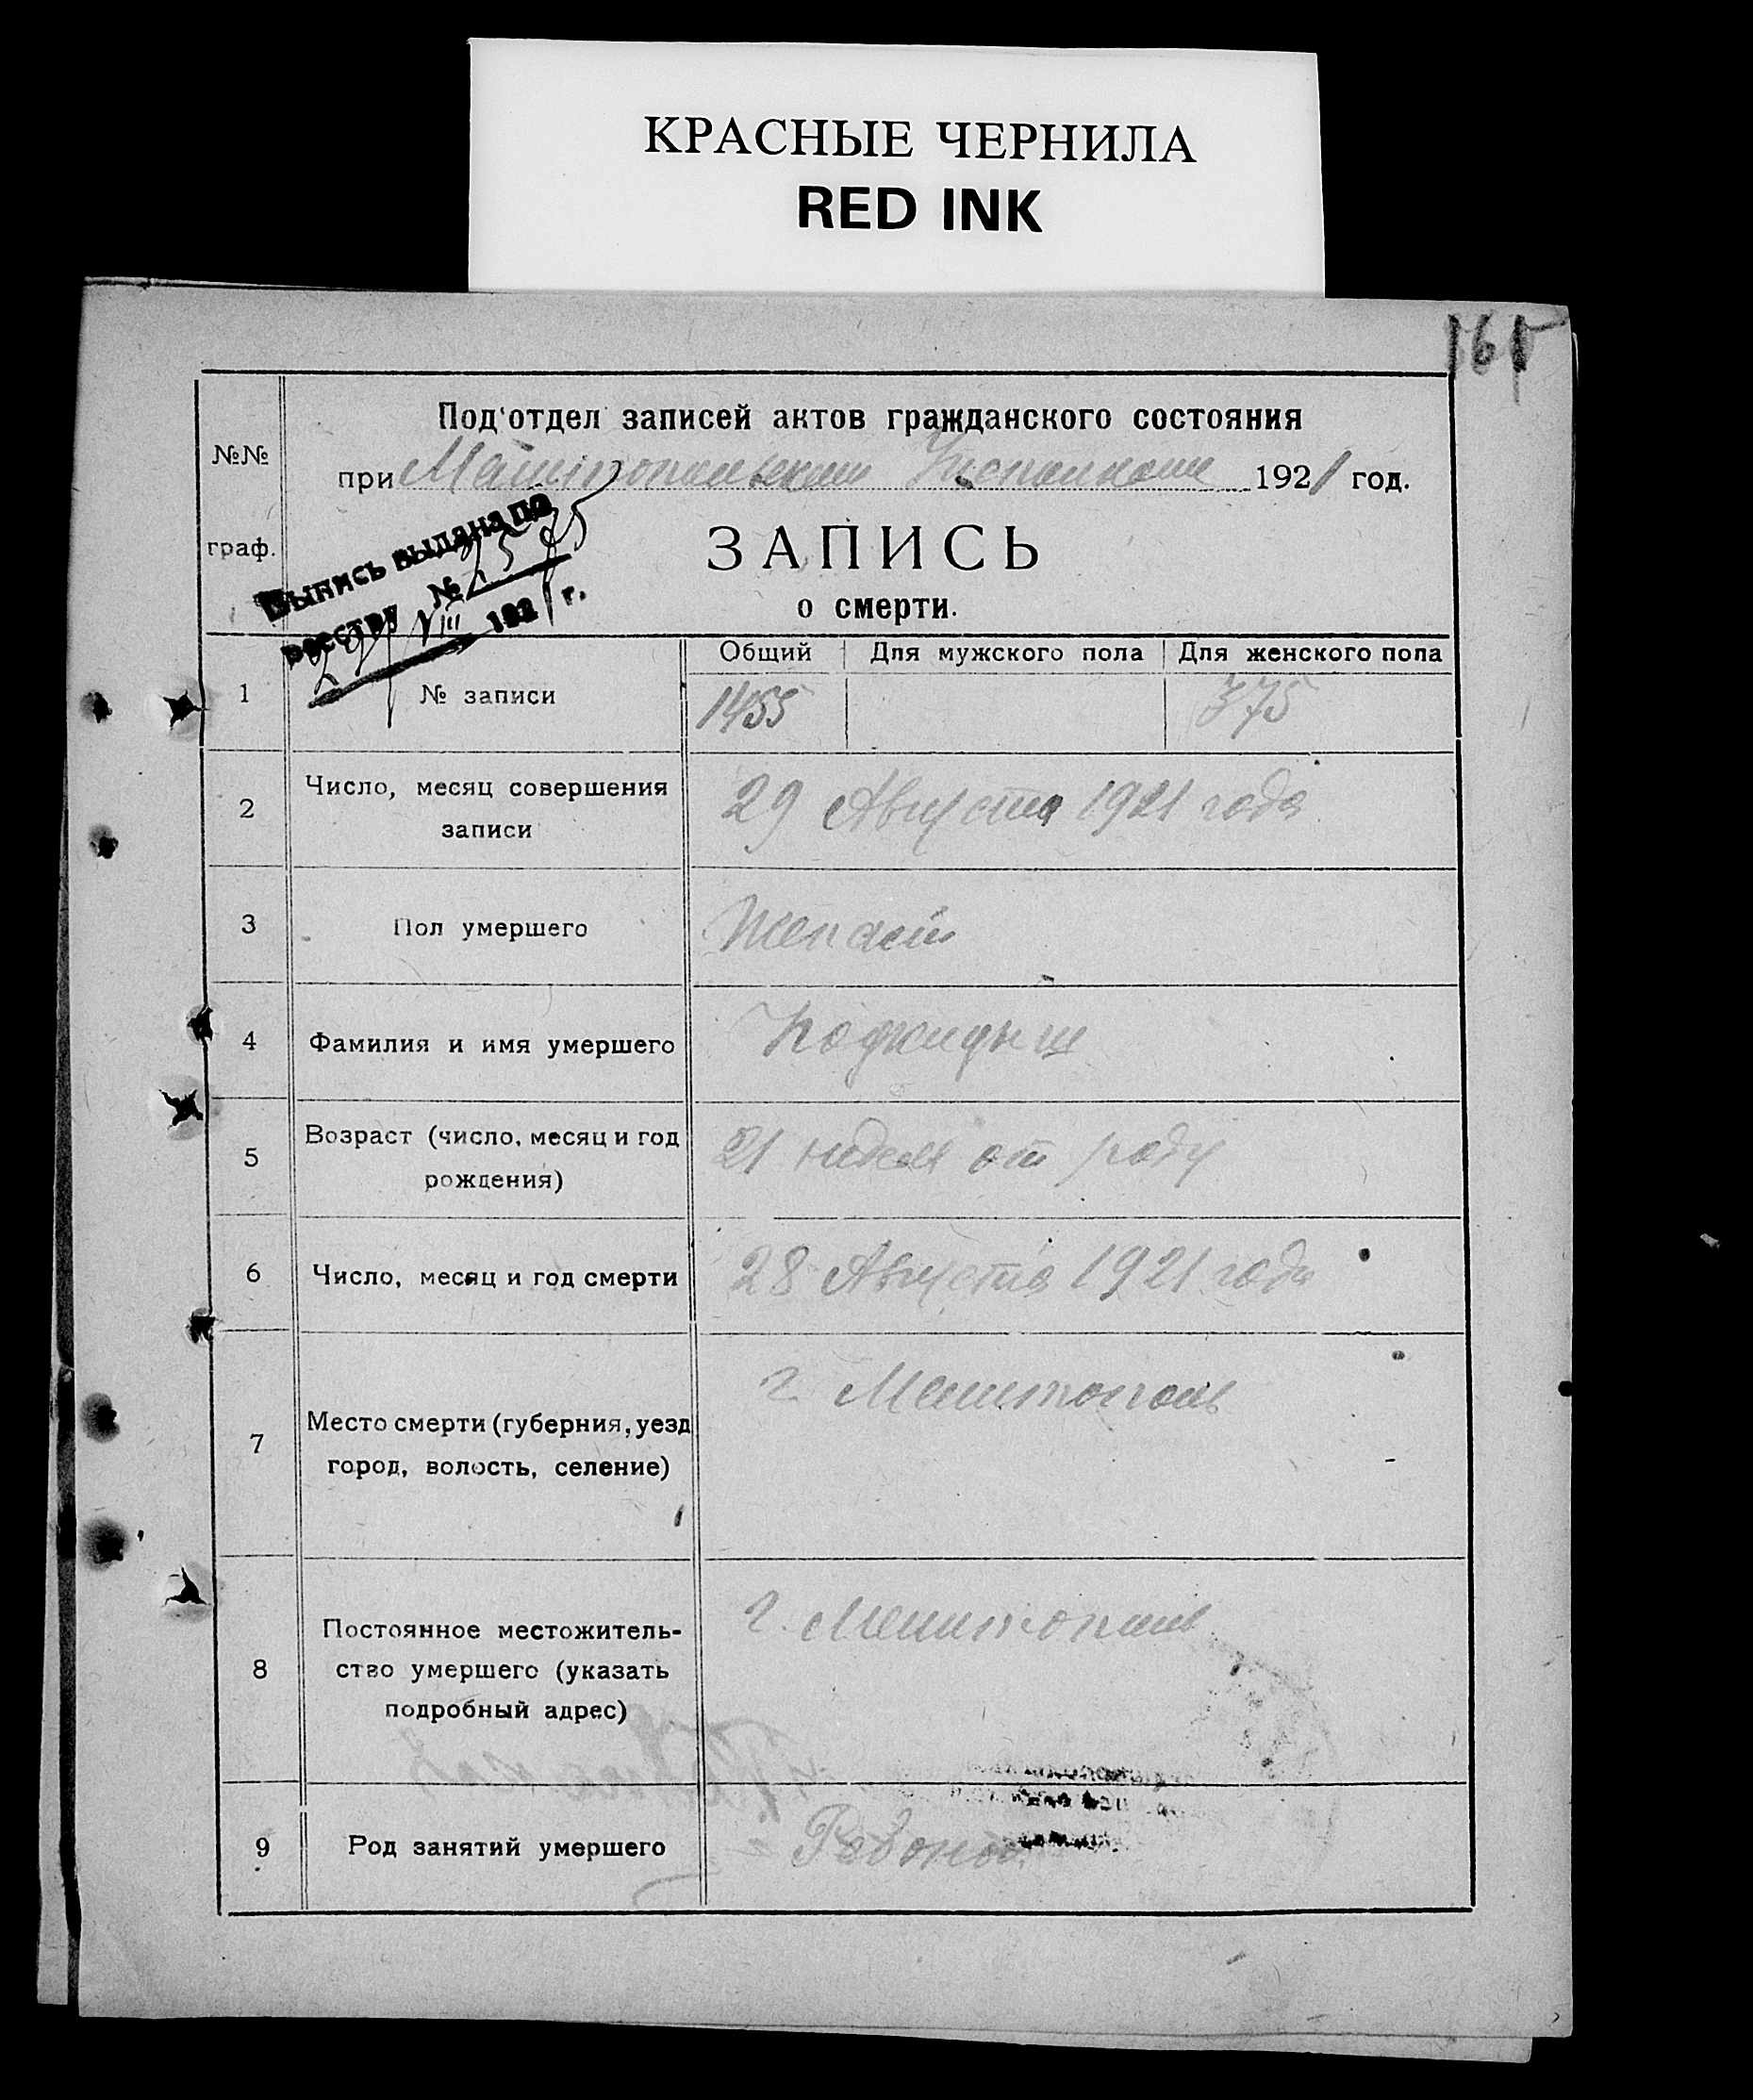 КРАСНЫЕ ЧЕРНИЛА
RED INK
161
Под'отдел записей актов гражданского состояния
№№
при Мелитопольском Исполкоме 1921 год.
граф.
ЗАПИСЬ
о смерти.
Выпись выдана по
реестру №
29/VIII 1921 г.
Общий Для мужского пола Для женского пола
1 № записи 1455 375
2 Число, месяц совершения 29 Августа 1921 года
записи
3 Пол умершего Женский
4 Фамилия и имя умершего
5 Возраст (число, месяц и год 21 недели от роду
рождения)
6 Число, месяц и год смерти 28 Августа 1921 года
7 Место смерти (губерния, уезд г. Мелитополь
город, волость, селение)
8 Постоянное местожитель- г. Мелитополь
ство умершего (указать
подробный адрес)
9 Род занятий умершего